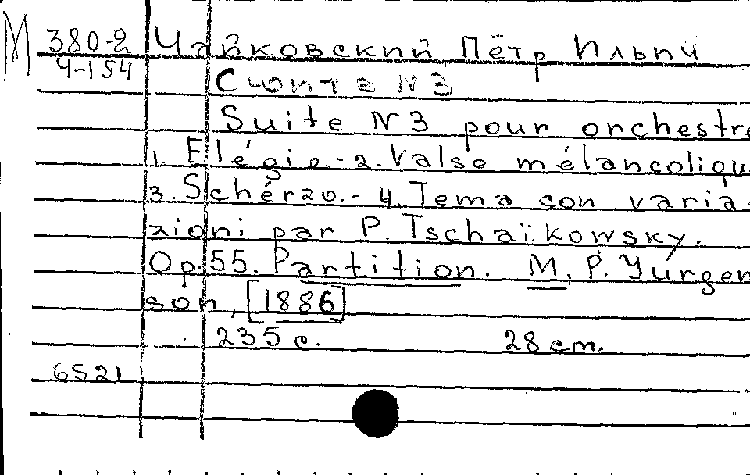 М 380-2 Чайковский Пётр Ильич
Ч-154 Сюита N3
Suite N3 pour orchestre
1. Elégie.-2. Valse mélancolique
3. Schérzo.-4. Tema con varia-
zioni par P. Tschaïkowsky.
Op. 55. Partition. М, P. Yurgen-
son, [1886]
235 с. 28 cm.
6521